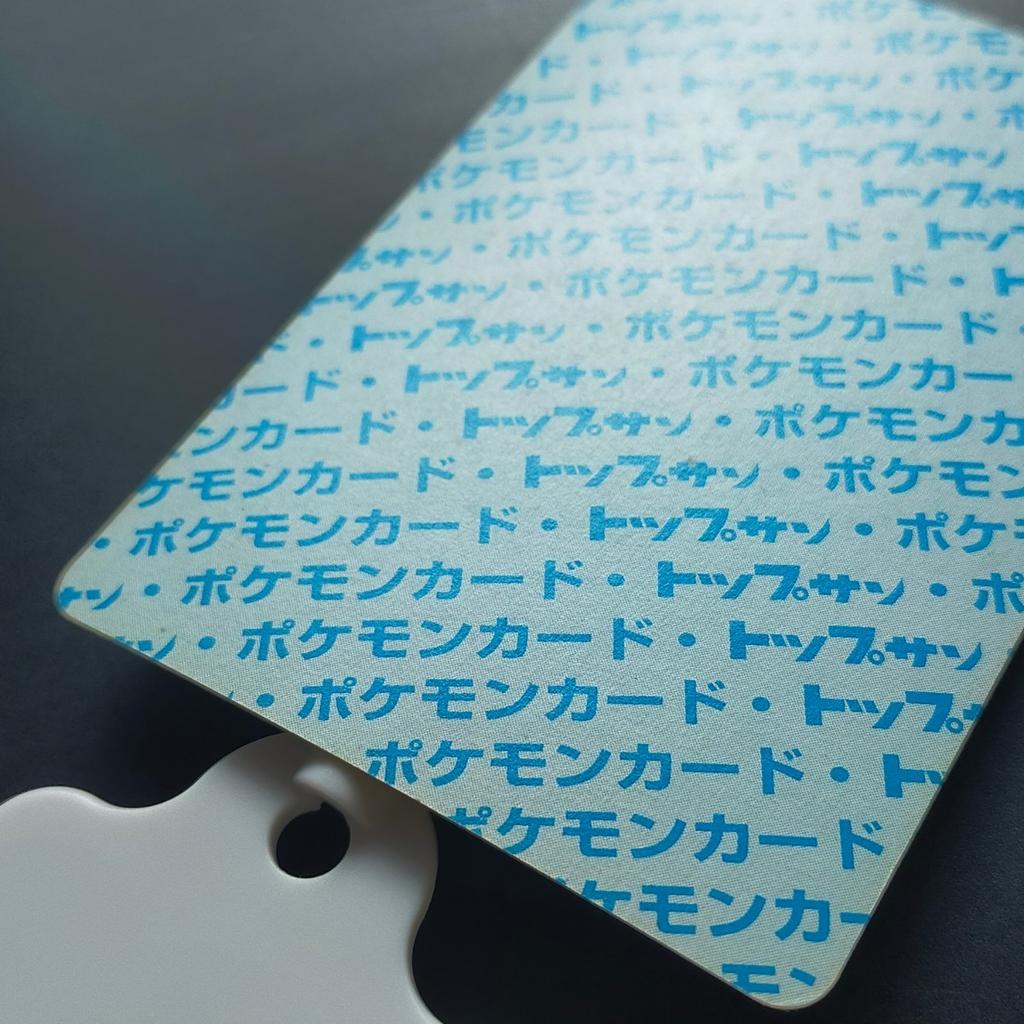 ポケモン
トップサン・ポケモ
ド・トップサン・ポケ
カード・トップサン・ポ
モンカード・トップサン
ポケモンカード・トップサン
・ポケモンカード・トップサ
サン・ポケモンカード・トッ
プサン・ポケモンカード・ト
トップサン・ポケモンカード・
ド・トップサン・ポケモンカード・
ード・トップサン・ポケモンカー
ンカード・トップサン・ポケモンカ
ケモンカード・トップサン・ポケモン
・ポケモンカード・トップサン・ポケ
サン・ポケモンカード・トップサン・ポ
ン・ポケモンカード・トップサン
・ポケモンカード・トップ
ポケモンカード・ト
ポケモンカード
ケモンカー
モン